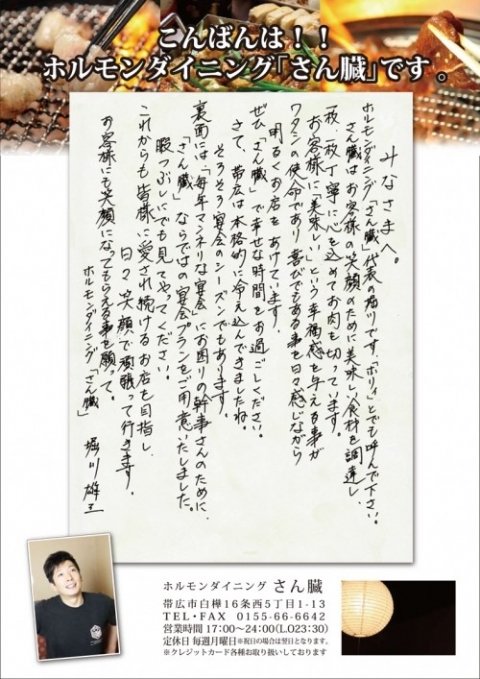 こんばんは！！
ホルモンダイニング「さん臓」です。
みなさまへ。
ホルモンダイニング「さん臓」代表の堀川です。「ホリィ」とでも呼んで下さい。
さん臓はお客様の笑顔のために美味しい食材を調達し、
一枚一枚丁寧に心を込めてお肉を切っています。
お客様に「美味しい」という幸福感を与える事が
ワタシの使命であり喜びでもある事を日々感じながら
明るくお店をあけています。
ぜひ「さん臓」で幸せな時間をお過ごしください。
さて、帯広は本格的に冷え込んできましたね。
そろそろ宴会のシーズンでもあります。
裏面には「毎年マンネリな宴会」にお困りの幹事さんのために、
「さん臓」ならではの宴会プランをご用意いたしました。
暇つぶしにでも見てやってください。
これからも皆様に愛され続けるお店を目指し、
日々笑顔で頑張って行きます。
お客様にも笑顔になってもらえる事を願って。
ホルモンダイニング「さん臓」 堀川 雄
ホルモンダイニング さん臓
帯広市白樺16条西5丁目1-13
TEL・FAX 0155-66-6642
営業時間 17:00〜24:00(L.O23:30)
定休日 毎週月曜日※祝日の場合は翌日となります。
※クレジットカード各種お取り扱いしております